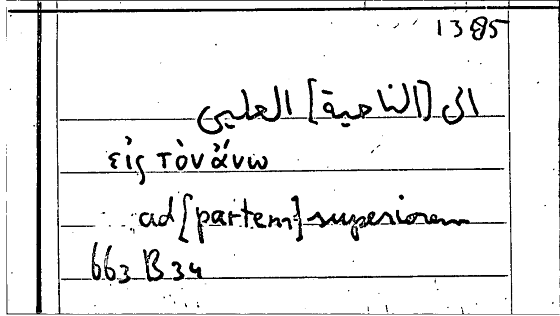 1385
الى [الناحية] العليى
εἰς τὸν ἄνω
ad [partem] superiorem
663 B 34